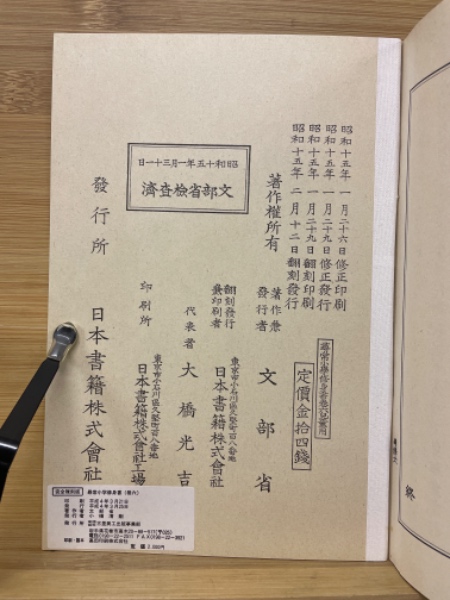 昭和十五年一月二十六日修正印刷
昭和十五年一月二十九日修正發行
昭和十五年一月二十九日翻刻印刷
昭和十五年二月十二日翻刻發行
著作權所有
昭和十五年一月三十一日
文部省檢査濟
定價金拾四錢
著作兼
發行者
文部省
翻刻發行
兼印刷者
東京市小石川區久堅町百八番地
日本書籍株式會社
代表者
大橋光吉
印刷所
東京市小石川區久堅町百八番地
日本書籍株式會社工場
發行所
日本書籍株式會社
完全復刻版
尋常小學修身書(巻六)
平成4年3月21日
2,000円